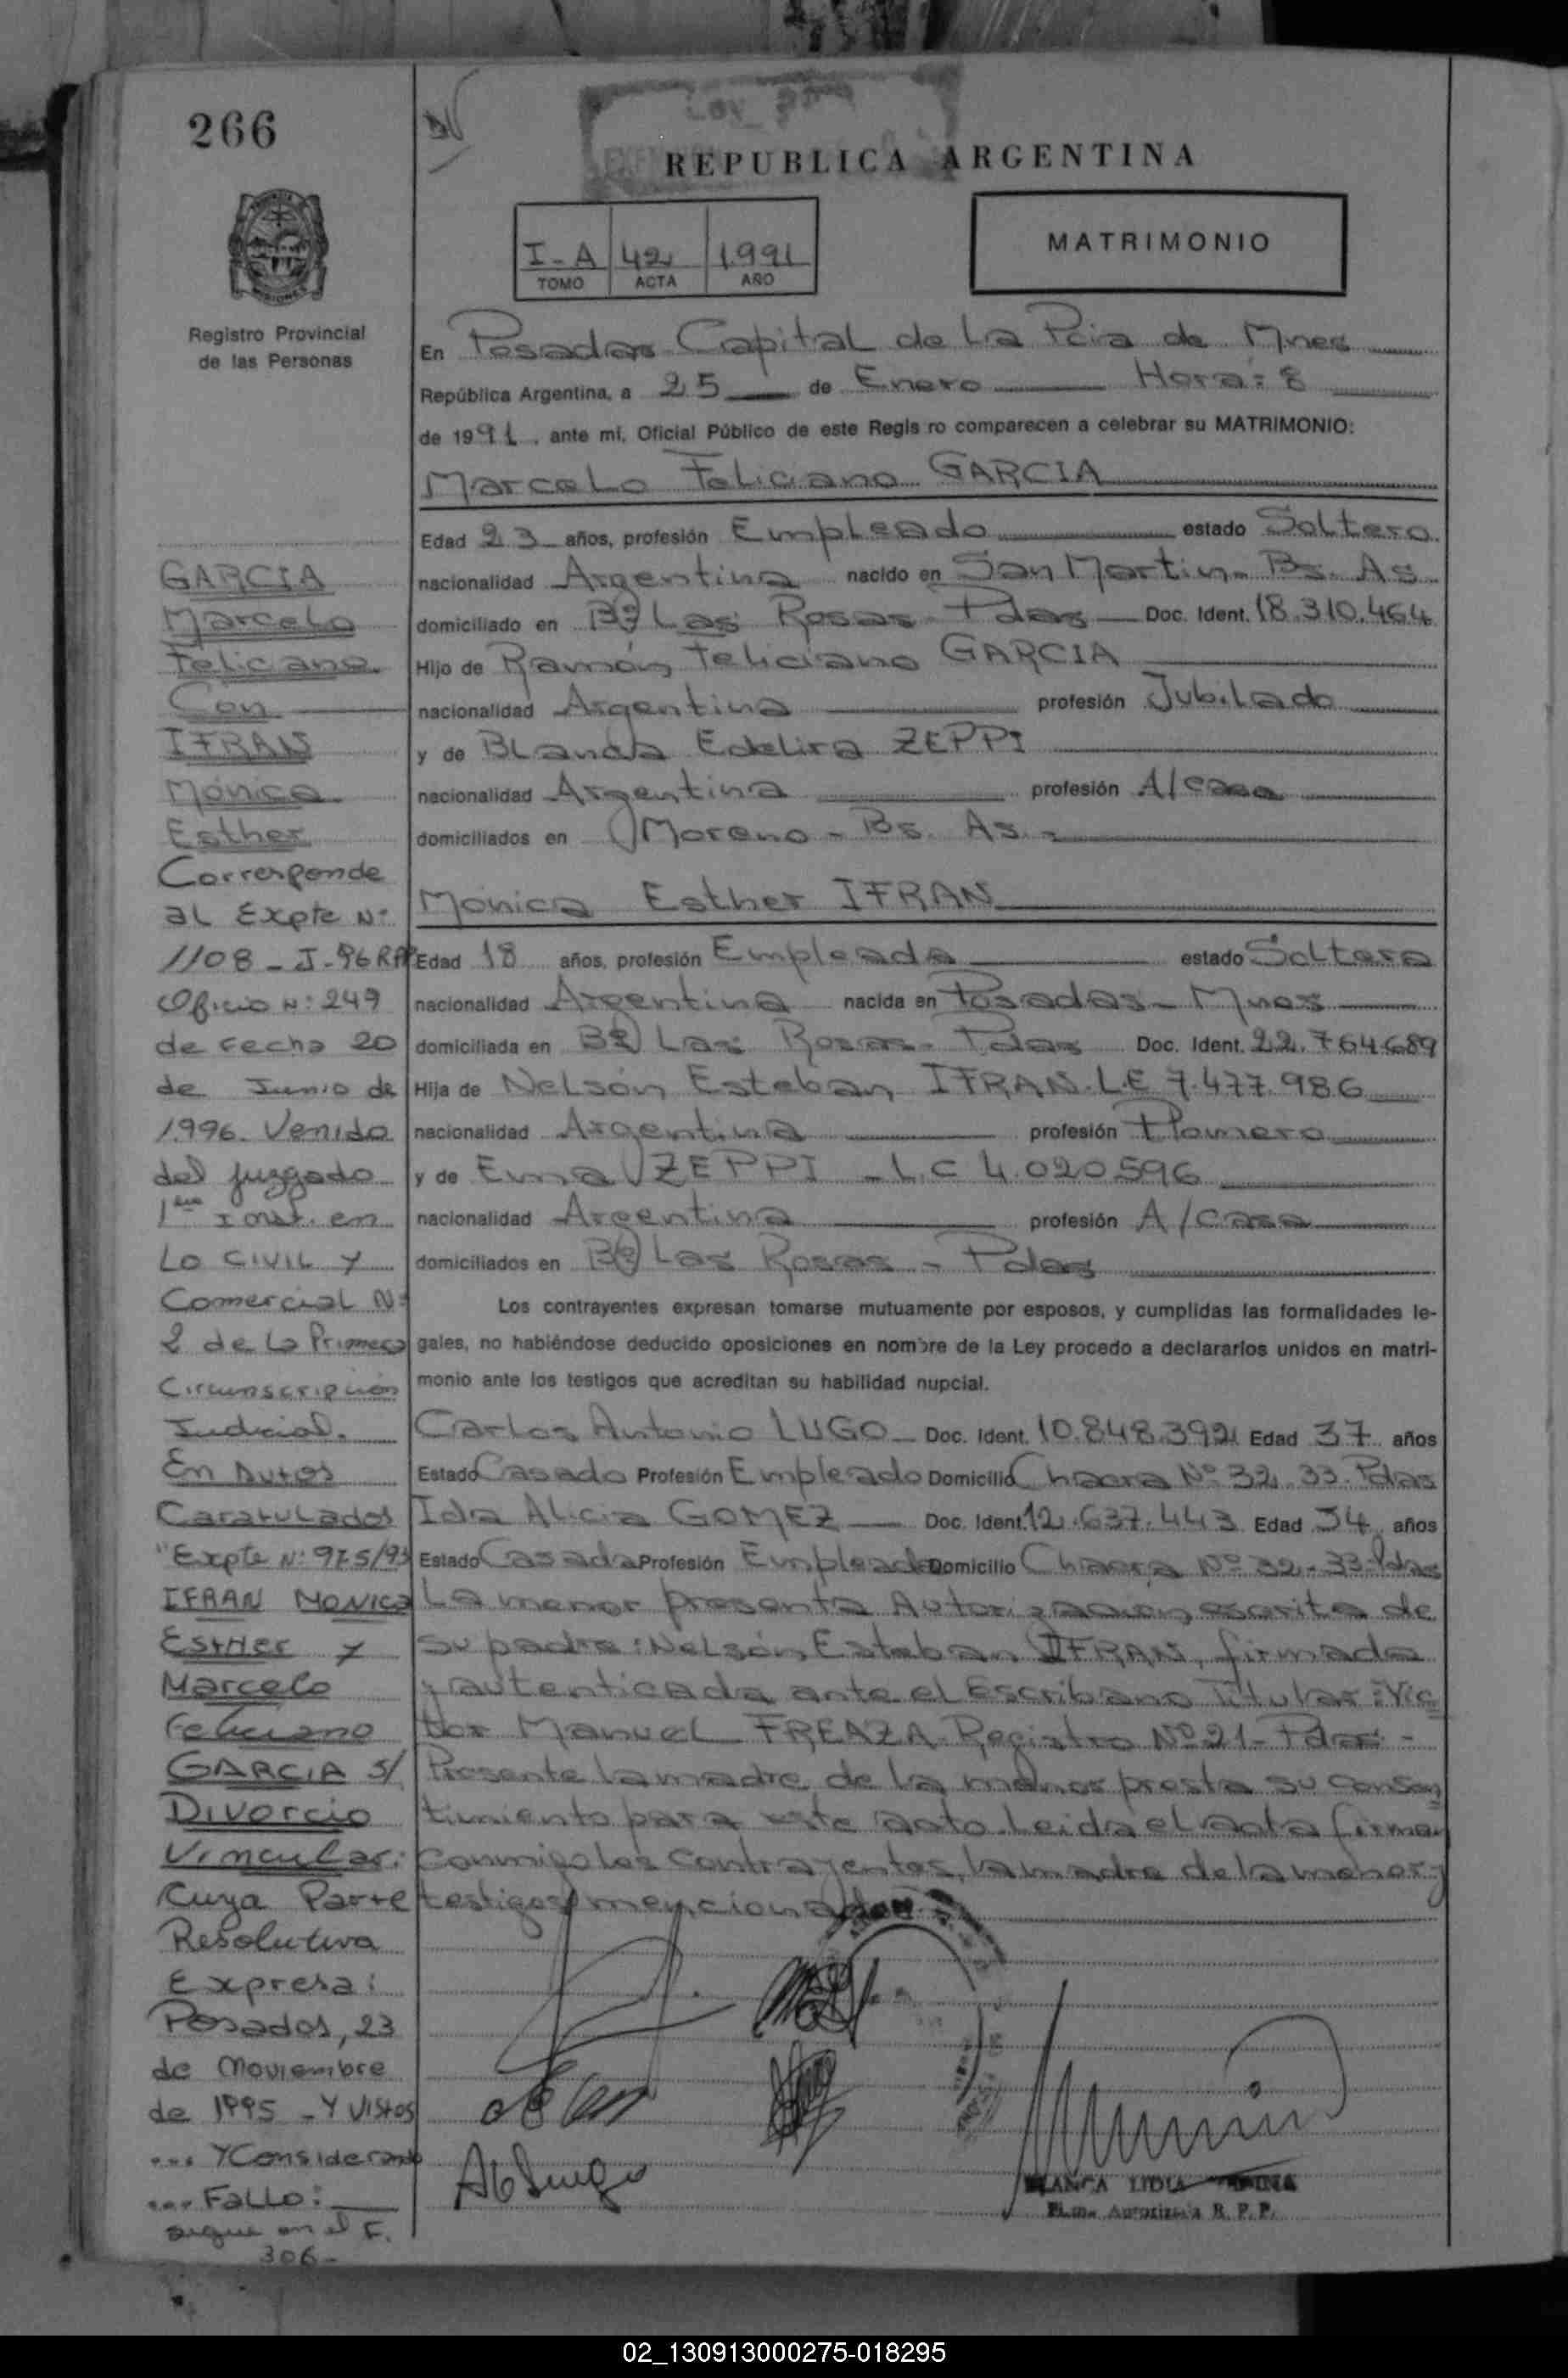 266
REPUBLICA ARGENTINA
I-A 42 1991
TOMO ACTA AÑO
MATRIMONIO
Registro Provincial
de las Personas
En Posadas Capital de la Pcia de Mnes
República Argentina, a 25 de Enero Hora: 8
de 1991, ante mi, Oficial Público de este Regis ro comparecen a celebrar su MATRIMONIO:
Marcelo Feliciano GARCIA
Edad 23 años, profesión Empleado estado Soltero
nacionalidad Argentina nacido en San Martin - Bs. As.
domiciliado en Bº Las Rosas - Pdas Doc. Ident. 18.310.464
Hijo de Ramón Feliciano GARCIA
nacionalidad Argentina profesión Jubilado
y de Blanca Edelira ZEPPI
nacionalidad Argentina profesión A/casa
domiciliados en Moreno - Bs. As. -
Mónica Esther IFRAN
Edad 18 años, profesión Empleada estado Soltera
nacionalidad Argentina nacida en Posadas - Mnes
domiciliada en Bº Las Rosas - Pdas Doc. Ident. 22.764.689
Hija de Nelsón Esteban IFRAN. L.E 7.477.986
nacionalidad Argentina profesión Plomero
y de Ema ZEPPI - L.C 4.020.596
nacionalidad Argentina profesión A/casa
domiciliados en Bº Las Rosas - Pdas
Los contrayentes expresan tomarse mutuamente por esposos, y cumplidas las formalidades le-
gales, no habiéndose deducido oposiciones en nombre de la Ley procedo a declararlos unidos en matri-
monio ante los testigos que acreditan su habilidad nupcial.
Carlos Antonio LUGO - Doc. Ident. 10.848.392 Edad 37 años
Estado Casado Profesión Empleado Domicilio Chacra Nº 32-33-Pdas
Ida Alicia GOMEZ Doc. Ident. 12.637.443 Edad 34 años
Estado Casada Profesión Empleada Domicilio Chacra Nº 32-33-Pdas
La menor presenta Autorización escrita de
su padre: Nelsón Esteban IFRAN, firmada
y autenticada ante el Escribano Titular: Vic
tor Manuel FREAZA. Registro Nº 21 - Pdas -
Presente la madre de la menor presta su consen
timiento para este acto. Leida el acta firman
conmigo los contrayentes, la madre de la menor y
testigos mencionados.
GARCIA
Marcelo
Feliciano
Con
IFRAN
Mónica
Esther
Corresponde
al Expte Nº
1108-J-96 RPP
Oficio Nº 249
de fecha 20
de Junio de
1996. Venido
del juzgado
1era Inst. en
Lo CIVIL Y
Comercial Nº
2 de la Primera
Circunscripción
Judicial.
En Autos
Caratulados
"Expte Nº 975/93
IFRAN MONICA
Esther y
Marcelo
Feliciano
GARCIA S/
Divorcio
Vincular:
Cuya Parte
Resolutiva
Expresa:
Posadas, 23
de Noviembre
de 1995 - Y Vistos
... Y Considerando
... Fallo:
sigue en el F.
306-
BLANCA LIDIA
R. P. P.
02_130913000275-018295